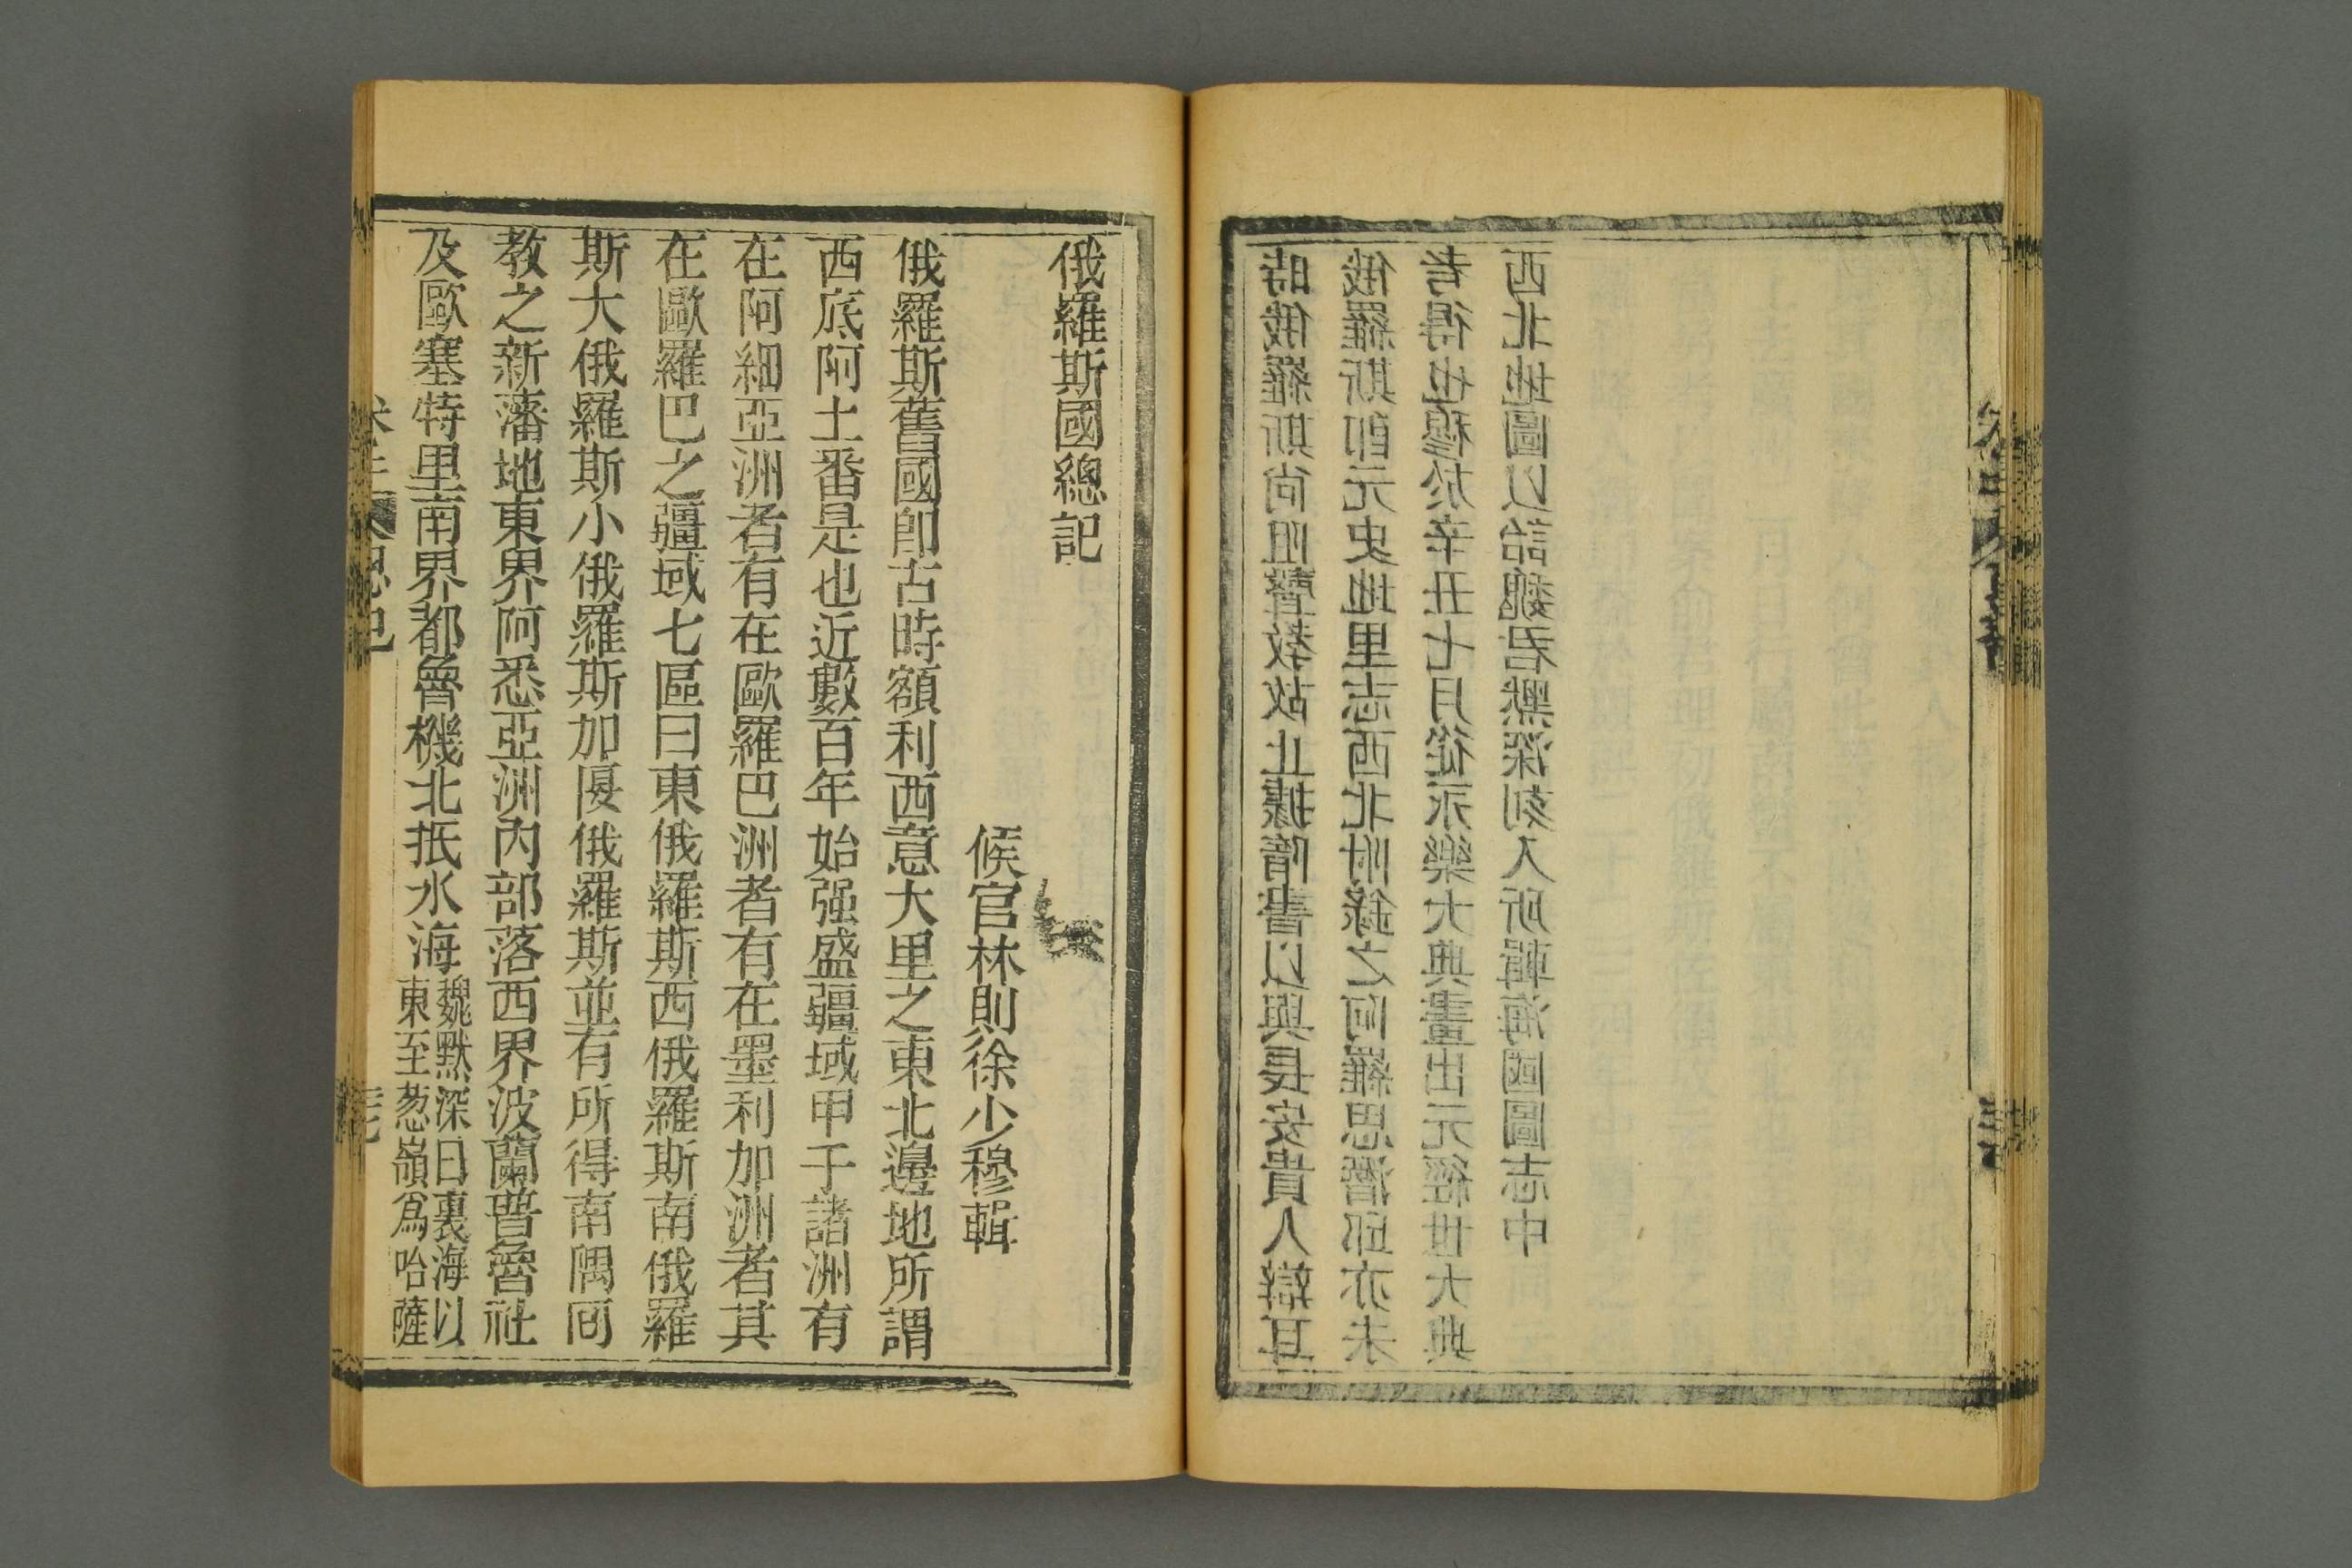 時俄羅斯尚阻聲教故止據隋書以與長安貴人辯耳
俄羅斯卽元史地里志西北附錄之阿羅思潛邱亦未
考得也穆於辛丑七月從永樂大典畫出元經世大典
西北地圖以詒魏君默深刻入所輯海國圖志中
俄羅斯國總記
候官林則徐少穆輯
俄羅斯舊國卽古時額利西意大里之東北邊地所謂
西底阿土番是也近數百年始强盛疆域甲于諸洲有
在阿細亞洲者有在歐羅巴洲者有在墨利加洲者其
在歐羅巴之疆域七區曰東俄羅斯西俄羅斯南俄羅
斯大俄羅斯小俄羅斯加匽俄羅斯並有所得南隅囘
教之新藩地東界阿悉亞洲內部落西界波蘭普魯社
及歐塞特里南界都魯機北抵水海魏默深曰裏海以
東至葱嶺爲哈薩